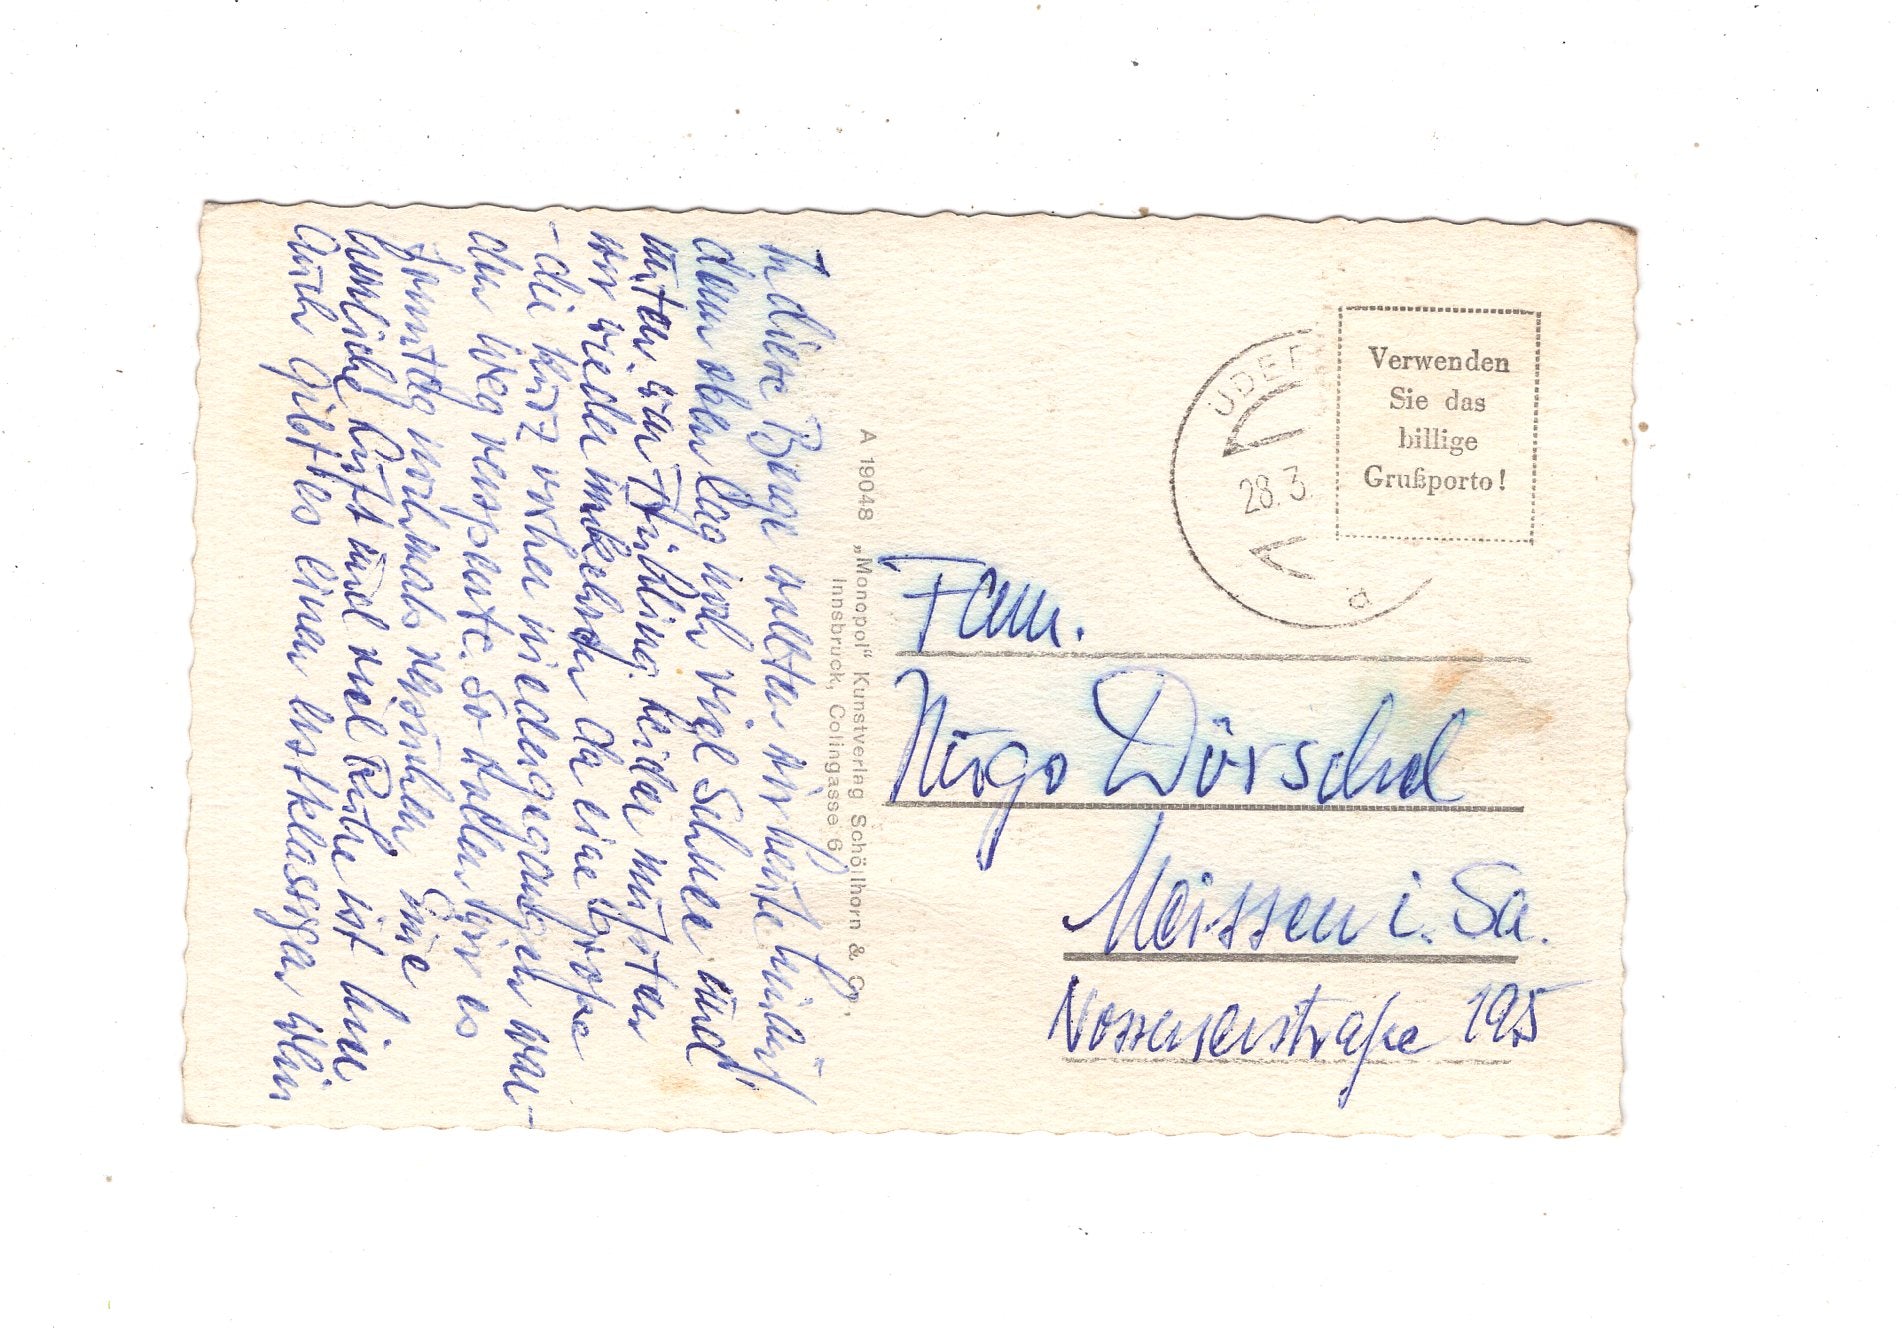 In diese Berge wollten wir heute hinauf
denn oben lag noch viel Schnee und
unten war Frühling. Leider mußten
wir wieder umkehren da eine große
die kurz vorher niedergegangen war
den Weg versperrte. So wollen wir es
Sonntag nochmals versuchen. Eine
herrliche Luft und viel Ruhe ist hier
auch gibt es einen erstklassigen Wein
A 19048 „Monopol“ Kunstverlag Schöllhorn & Co.,
Innsbruck, Colingasse 6
UDER
28.3
a
Verwenden
Sie das
billige
Grußporto!
Fam.
Hugo Dörschel
Meissen i. Sa.
Nossenerstraße 195